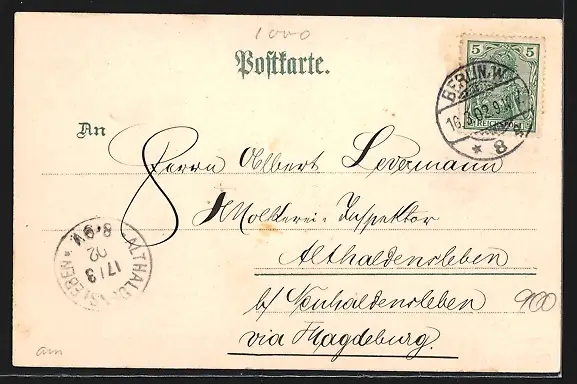 1000
Postkarte.
5 5
REICHSPOST
BERLIN. W.
16.3.02.9-10 V.
* 8
An
Herrn Albert Levermann
8
Molkerei-Inspektor
Althaldensleben
b/ Neuhaldensleben
via Magdeburg.
ALTHALDENSLEBEN *
17/3
02
8-9V.
900
am